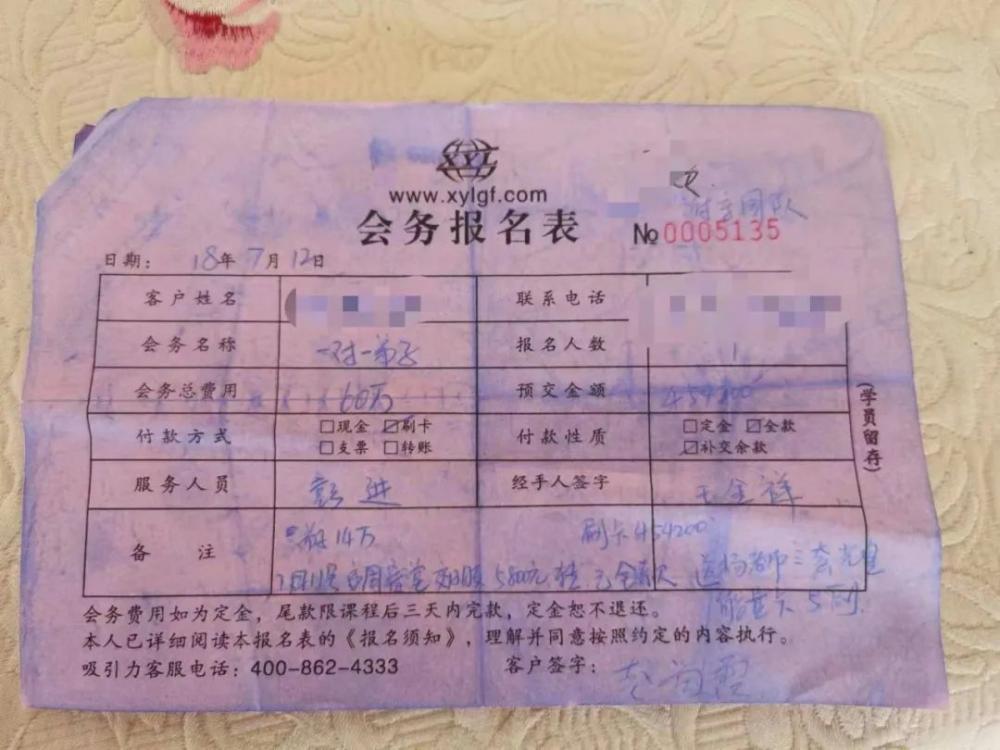 XYL
www.xylgf.com
会务报名表
团队
№0005135
日期： 18年 7月 12日
客户姓名 联系电话
会务名称 一对一弟子 报名人数 1
会务总费用 60万 预交金额 454200
付款方式 □现金 ☑刷卡 □支票 □转账 付款性质 □定金 ☑全款 ☑补交余款
服务人员 彭进 经手人签字 王全祥
备 注 14万 刷卡454200
5800元
会务费用如为定金，尾款限课程后三天内完款，定金恕不退还。
本人已详细阅读本报名表的《报名须知》，理解并同意按照约定的内容执行。
吸引力客服电话：400-862-4333 客户签字：
(学员留存)